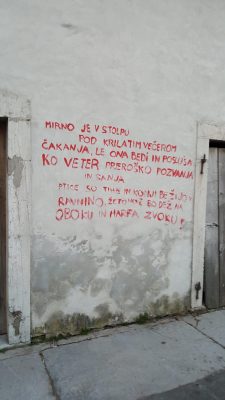 MIRNO JE V STOLPU
POD KRILATIM VEČEROM
ČAKANJA, LE ONA BEDI IN POSLUŠA
KO VETER PREROŠKO POZVANJA
IN SANJA
PTICE SO TIHE IN KONJI BEŽIJO V
RAVNINO, ŽE POKAŽ BO DEŽ NA
OBOKU IN HARFA ZVOKU!